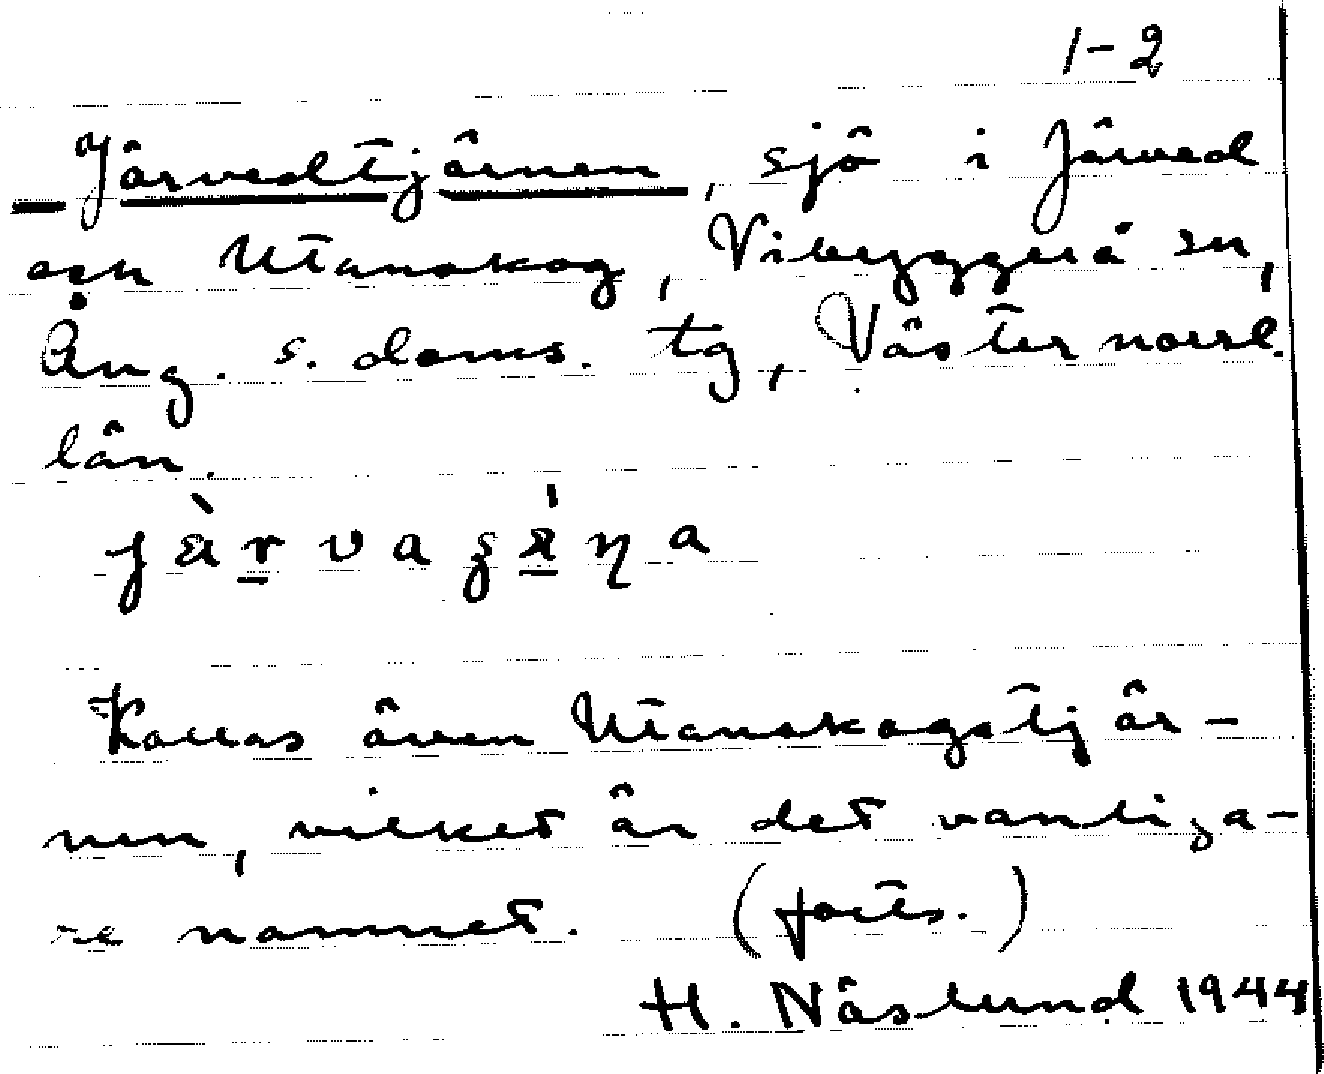 1-2
Järvedtjärnen, sjö i Järved
och Utanskog, Vibyggerå sn,
Ång. s. doms. tg, Västernorrl.
län.
Kallas även Utanskogstjär-
nen, vilket är det vanliga-
re namnet. (forts.)
H. Näslund 1944